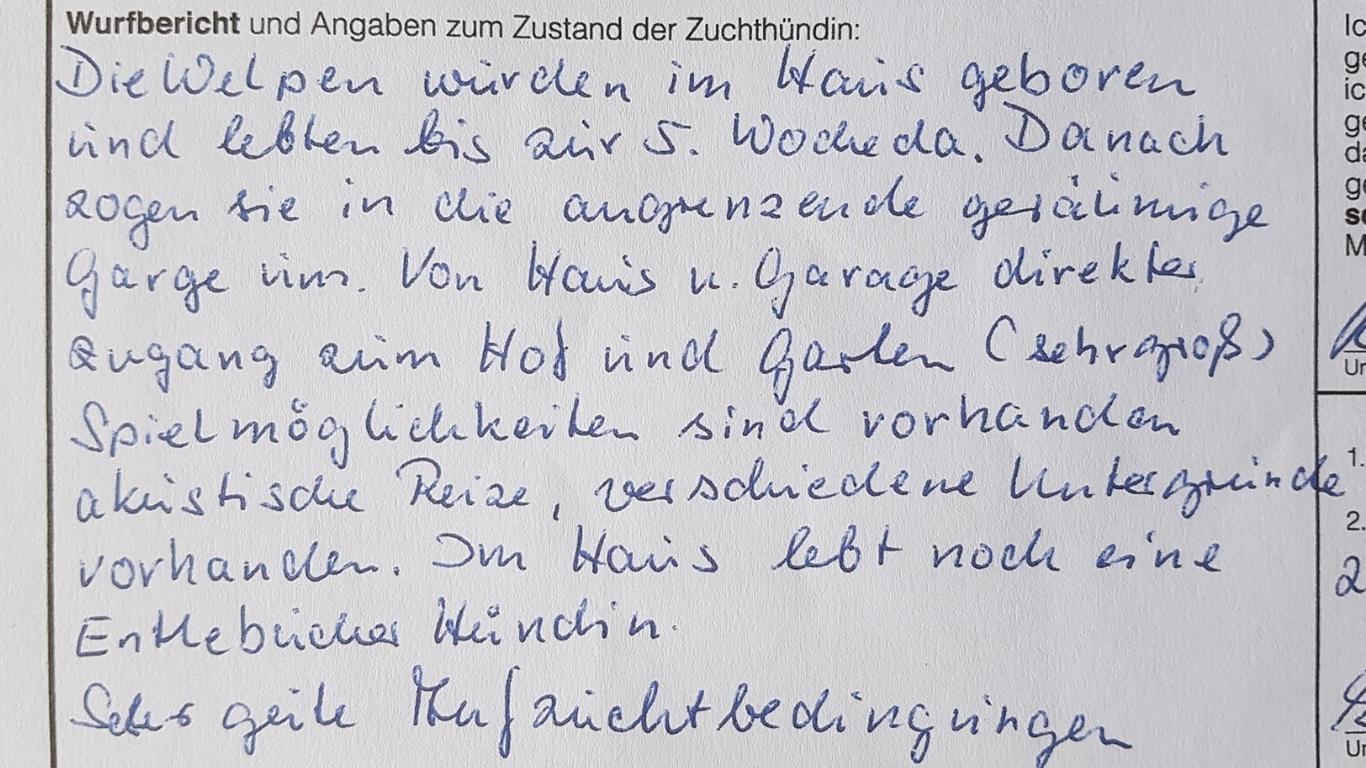 Wurfbericht und Angaben zum Zustand der Zuchthündin:
Die Welpen wurden im Haus geboren
und lebten bis zur 5. Woche da. Danach
zogen sie in die angrenzende geräumige
Garge um. Von Haus u. Garage direkter
Zugang zum Hof und Garten (sehr groß)
Spielmöglichkeiten sind vorhanden
akustische Reize, verschiedene Untergründe
vorhanden. Im Haus lebt noch eine
Entlebucher Hündin.
Sehr gute Aufzuchtbedingungen
Ic
ge
ic
ge
da
ge
se
M
Un
1.
2.
2
Un